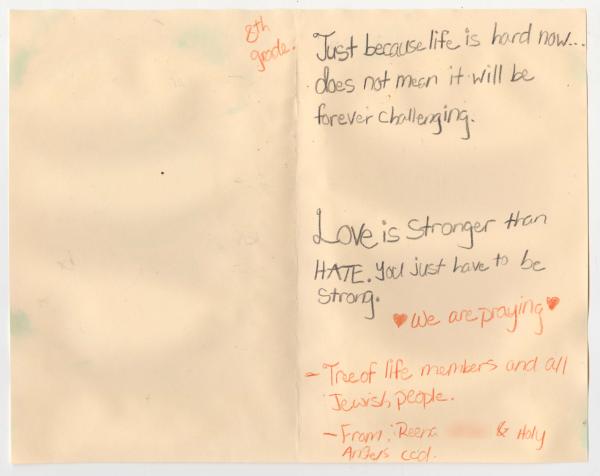 8th
grade.
Just because life is hard now...
does not mean it will be
forever challenging.
Love is Stronger than
HATE. You just have to be
Strong.
♥ We are praying ♥
- Tree of life members and all
Jewish people.
- From: Reena & Holy
Angels ccd.